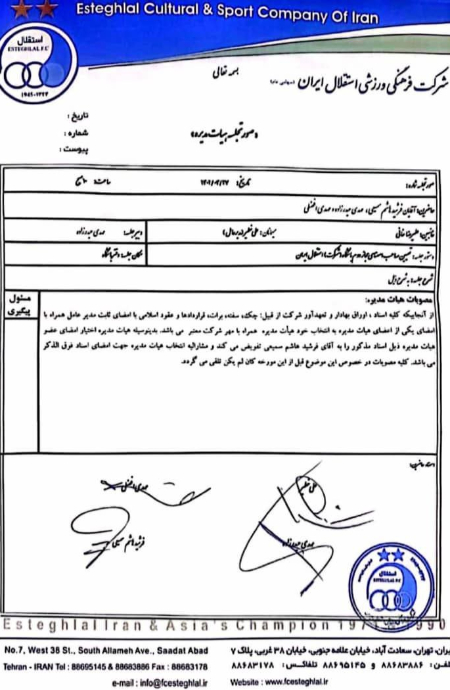 Esteghlal Cultural & Sport Company Of Iran
استقلال
ESTEGHLAL F.C
۱۹۴۵-۱۳۲۴
بسمه تعالی
شرکت فرهنگی ورزشی استقلال ایران (سهامی عام)
تاریخ :
شماره :
پیوست :
«صورتجلسه هیات مدیره»
صورتجلسه شماره: تاریخ: ساعت: صبح
حاضرین: آقایان فرشید هاشم سمیعی، مهدی حیدرزاده، مهدی افضلی
غایبین: علیرضا خانی میهمانان: علی خطیر (مدیرعامل) دبیر جلسه: مهدی حیدرزاده
دستور جلسه: تعیین صاحب امضای مجاز شرکت استقلال ایران مکان جلسه: دفتر باشگاه
شرح جلسه: به شرح ذیل
مصوبات هیات مدیره:
مسئول پیگیری
از آنجاییکه کلیه اسناد ، اوراق بهادار و تعهدآور شرکت از قبیل: چک، سفته، بروات، قراردادها و عقود اسلامی با امضای ثابت مدیر عامل همراه با
امضای یکی از اعضای هیات مدیره به انتخاب خود هیأت مدیره همراه با مهر شرکت معتبر می باشد. بدینوسیله هیات مدیره اختیار امضای عضو
هیات مدیره ذیل اسناد مذکور را به آقای فرشید هاشم سمیعی تفویض می کند و مشارالیه انتخاب هیات مدیره جهت امضای اسناد فوق الذکر
می باشد. کلیه مصوبات در خصوص این موضوع قبل از این مورخه کان لم یکن تلقی می گردد.
امضاء حاضرین:
مهدی افضلی علی خطیر
فرشید هاشم سمیعی مهدی حیدرزاده
استقلال
ESTEGHLAL F.C
Esteghlal Iran & Asia's Champion 1971 - 1990
No.7, West 38 St., South Allameh Ave., Saadat Abad
Tehran - IRAN Tel : 88695145 & 88683886 Fax : 88683178
e-mail : info@fcesteghlal.ir
ایران، تهران، سعادت آباد، خیابان علامه جنوبی، خیابان ۳۸ غربی، پلاک ۷
تلفن : ۸۸۶۸۳۸۸۶ و ۸۸۶۹۵۱۴۵ تلفاکس : ۸۸۶۸۳۱۷۸
Website : www.fcesteghlal.ir